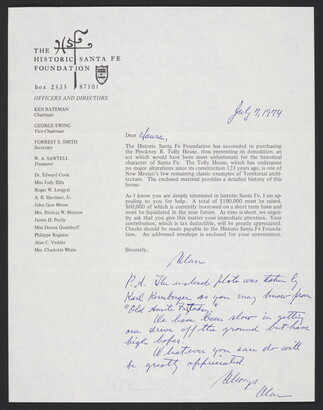 THE
HISTORIC SANTA FE
FOUNDATION
box 2535 87501
OFFICERS AND DIRECTORS
KEN BATEMAN
Chairman
GEORGE EWING
Vice-Chairman
FORREST S. SMITH
Secretary
W. A. SAWTELL
Treasurer
Dr. Edward Cook
Miss Judy Ellis
Roger W. Lengyel
A. B. Martinez, Jr.
John Gaw Meem
Mrs. Patricia W. Munson
James H. Purdy
Miss Donna Quasthoff
Philippe Register
Alan C. Vedder
Mrs. Charlotte White
July 7, 1974
Dear Laura,
The Historic Santa Fe Foundation has succeeded in purchasing
the Pinckney R. Tully House, thus preventing its demolition, an
act which would have been most unfortunate for the historical
character of Santa Fe. The Tully House, which has undergone
no major alterations since its construction 123 years ago, is one of
New Mexico's few remaining classic examples of Territorial archi-
tecture. The enclosed material provides a detailed history of this
house.
As I know you are deeply interested in historic Santa Fe, I am ap-
pealing to you for help. A total of $100,000 must be raised,
$60,000 of which is currently borrowed on a short term basis and
must be liquidated in the near future. As time is short, we urgen-
tly ask that you give this matter your immediate attention. Your
contribution, which is tax deductible, will be greatly appreciated.
Checks should be made payable to the Historic Santa Fe Founda-
tion. An addressed envelope is enclosed for your convenience.
Sincerely,
Alan
P.S. The enclosed photo was taken by
Karl Kernberger as you may know from
"Old Santa Fe Today"
We have been slow in getting
our drive off the ground but have
high hopes.
Whatever you can do will
be greatly appreciated.
Always
Alan